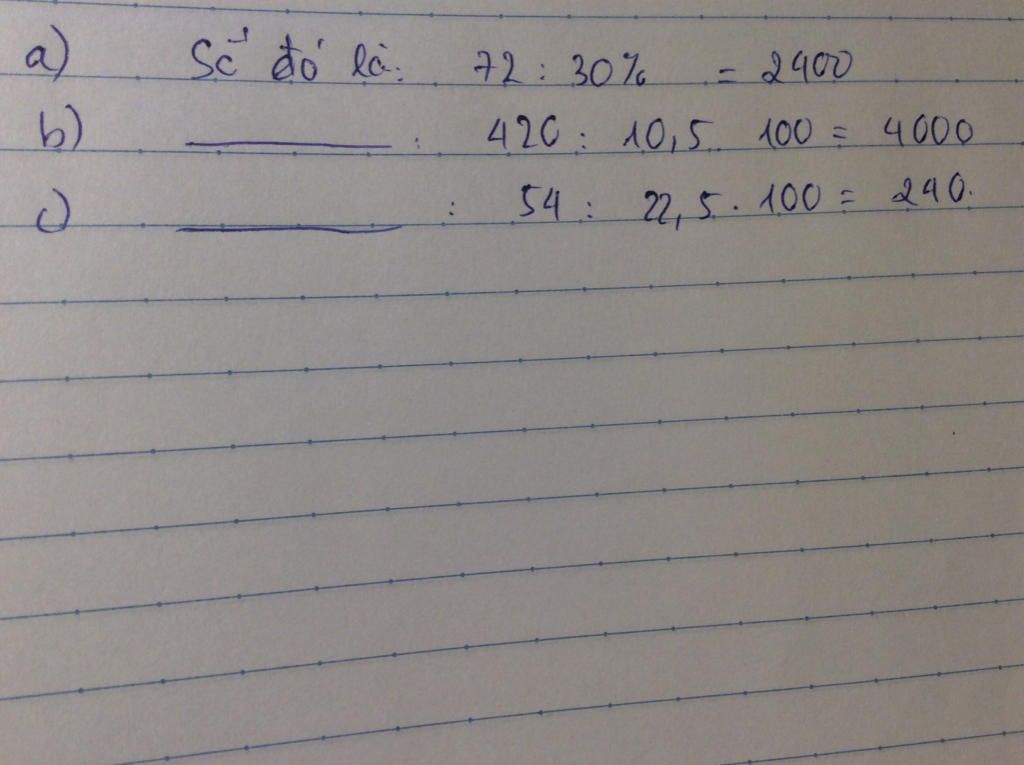 a) Số đó là: 72 : 30% = 2400
b) ______ : 420 : 10,5 100 = 4000
c) ______ : 54 : 22,5 . 100 = 240.